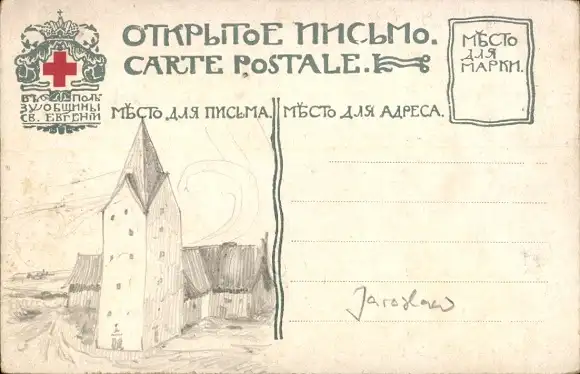 ОТКРЫТОЕ ПИСЬМО.
CARTE POSTALE.
МѢСТО
ДЛЯ
МАРКИ.
ВЪ ПОЛЬ
ЗУ ОБЩИНЫ
СВ. ЕВГЕНІИ
МѢСТО ДЛЯ ПИСЬМА.
МѢСТО ДЛЯ АДРЕСА.
Jaroslaw